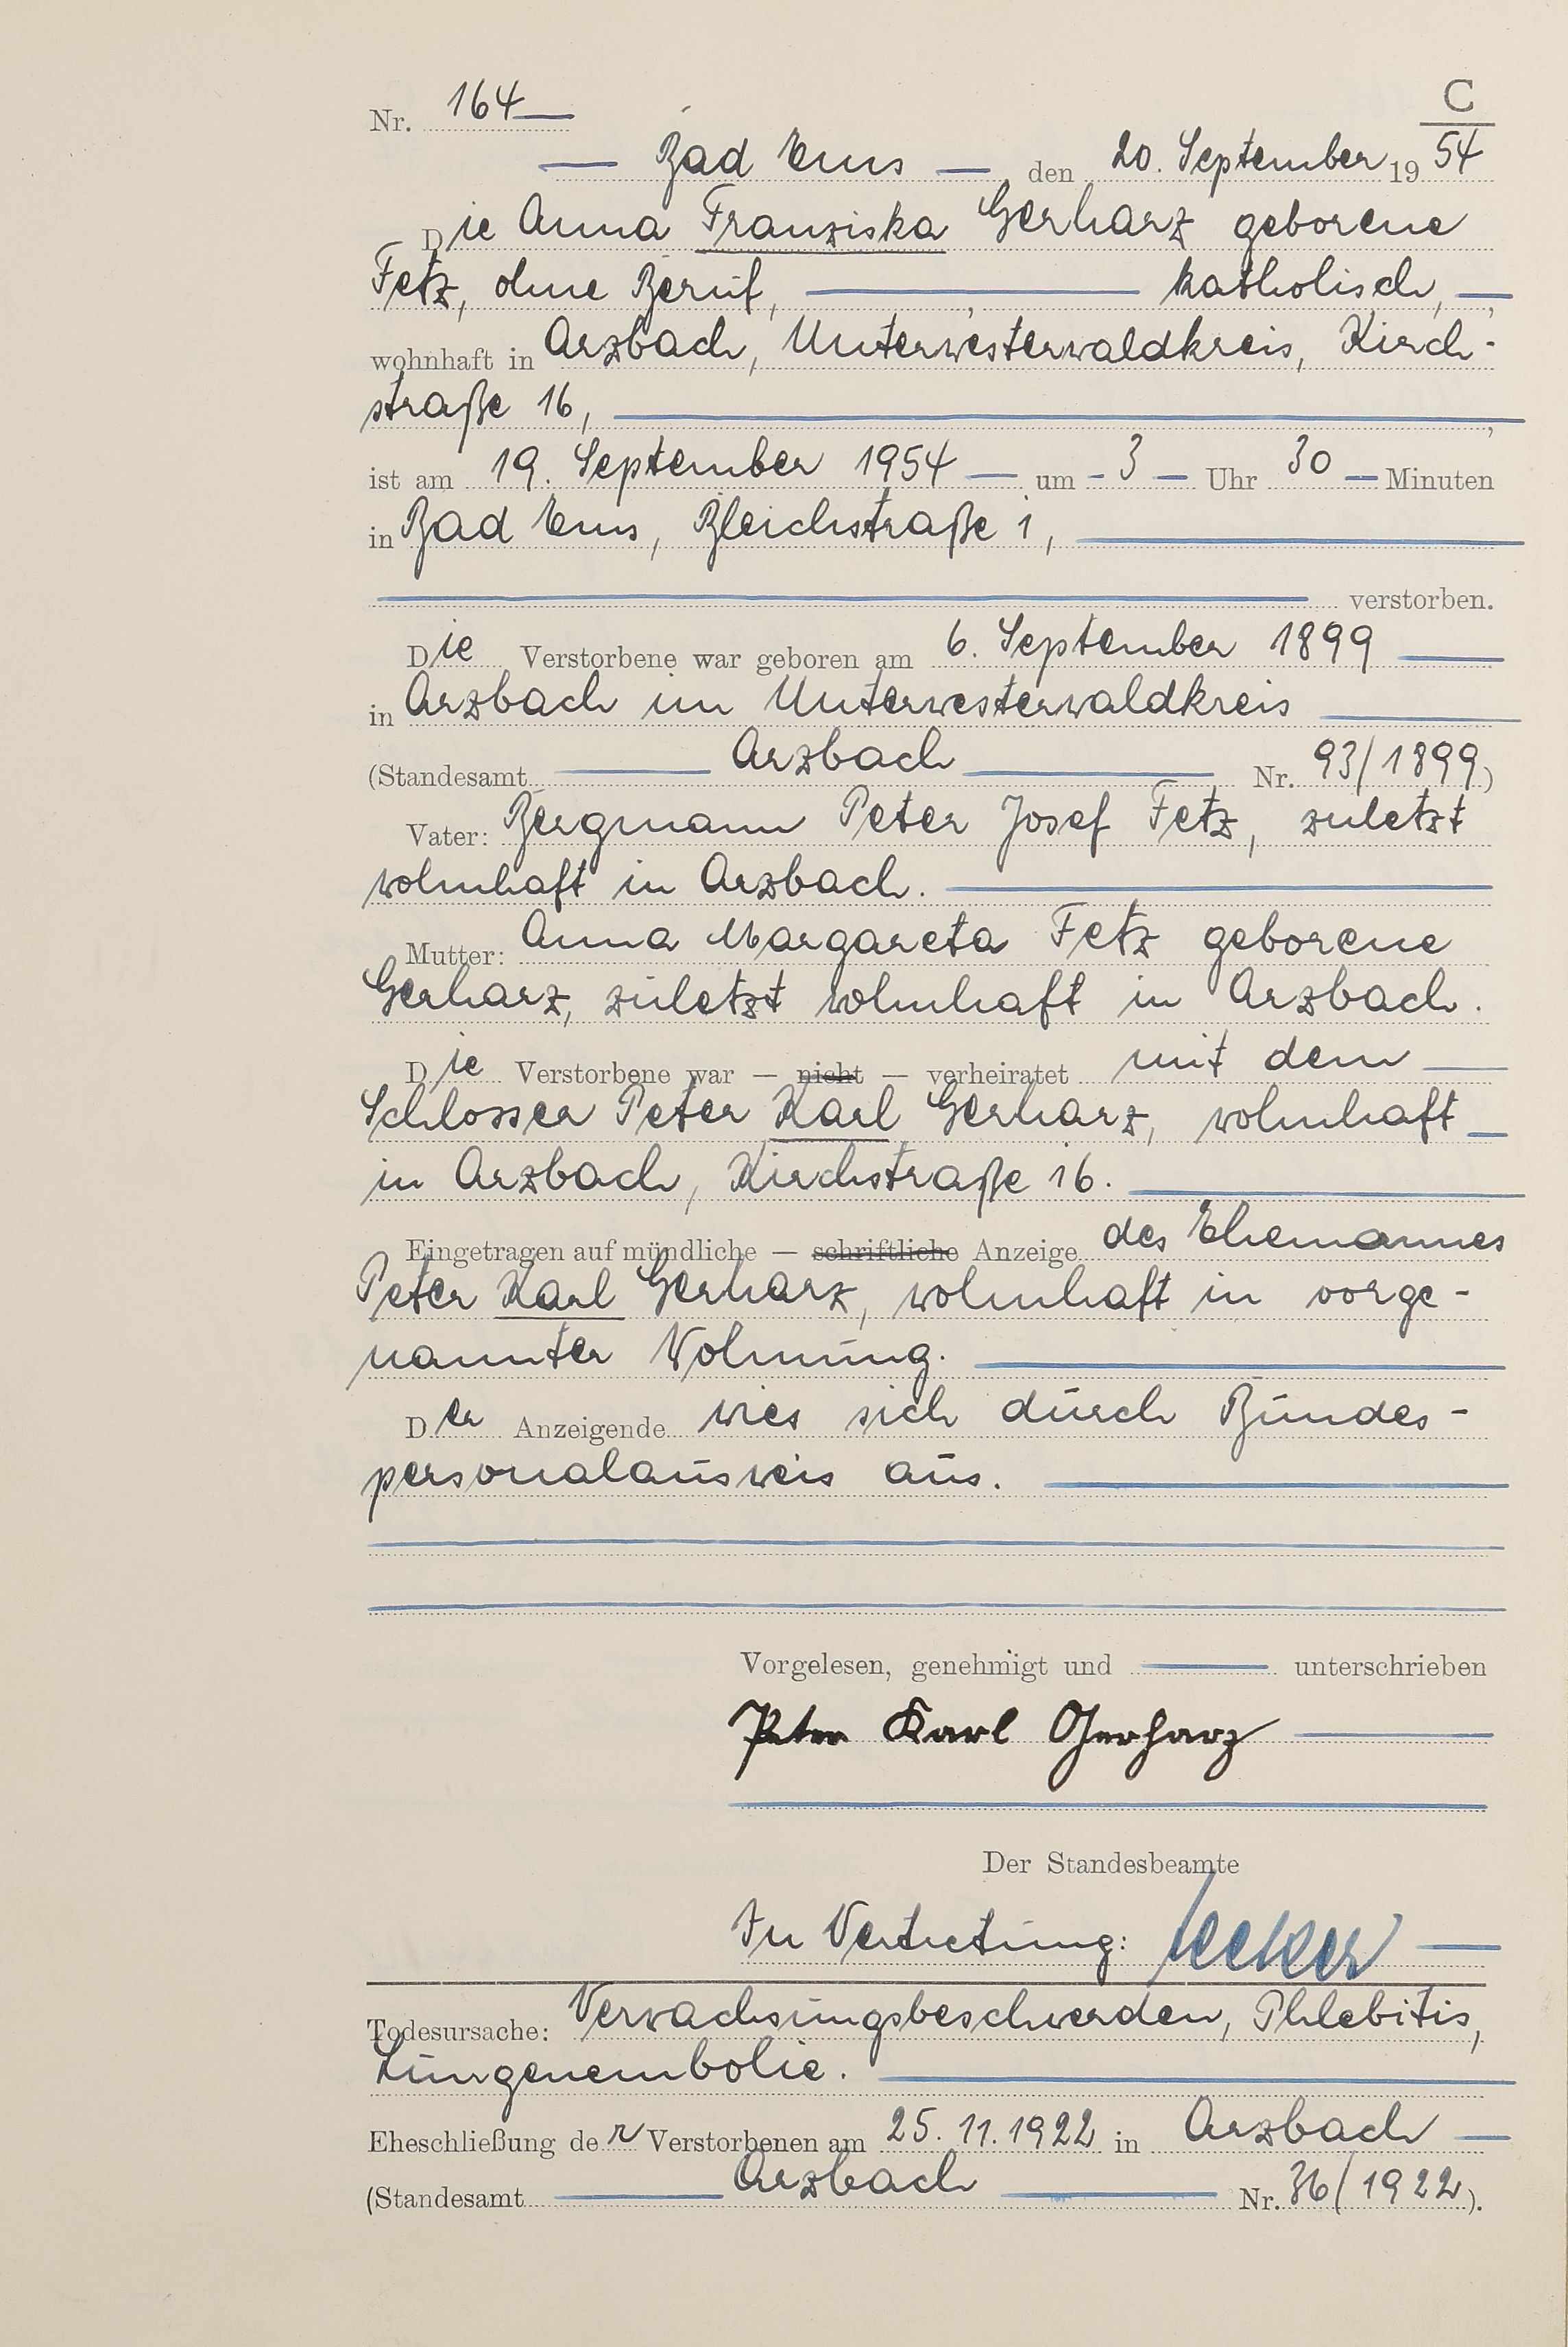 C
Nr. 164
Bad Ems, den 20. September 1954
Die Anna Franziska Gerharz geborene
Fetz, ohne Beruf, katholisch,
wohnhaft in Arzbach, Unterwesterwaldkreis, Kirch-
straße 16,
ist am 19. September 1954 um 3 Uhr 30 Minuten
in Bad Ems, Bleichstraße 1,
verstorben.
Die Verstorbene war geboren am 6. September 1899
in Arzbach im Unterwesterwaldkreis
(Standesamt Arzbach Nr. 93/1899)
Vater: Bergmann Peter Josef Fetz, zuletzt
wohnhaft in Arzbach.
Mutter: Anna Margareta Fetz geborene
Gerharz, zuletzt wohnhaft in Arzbach.
Die Verstorbene war — nicht — verheiratet mit dem
Schlosser Peter Karl Gerharz, wohnhaft
in Arzbach, Kirchstraße 16.
Eingetragen auf mündliche — schriftliche Anzeige des Ehemannes
Peter Karl Gerharz, wohnhaft in vorge-
nannter Wohnung.
Der Anzeigende wies sich durch Bundes-
personalausweis aus.
Vorgelesen, genehmigt und unterschrieben
Peter Karl Gerharz
Der Standesbeamte
In Vertretung:
Todesursache: Verwachsungsbeschwerden, Phlebitis,
Lungenembolie.
Eheschließung der Verstorbenen am 25.11.1922 in Arzbach
(Standesamt Arzbach Nr. 36/1922).